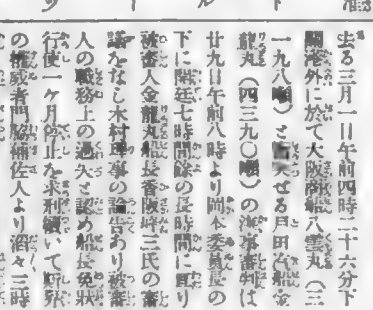 去る三月一日午前四時二十六分下
關港外に於て大阪商船八雲丸（三
一九八噸）と衝突せる戸田汽船金
龍丸（四三九〇噸）の海事審判は
廿九日午前八時より岡本委員長の
下に開廷七時間餘の長時間に亘り
被審人金龍丸船長香阪峰三氏の審
議をなし木村理事の論告あり被審
人の職務上の過失と認め船長免狀
行使一ケ月停止を求刑續いて斯界
の權威者門脇補佐人より滔々三時